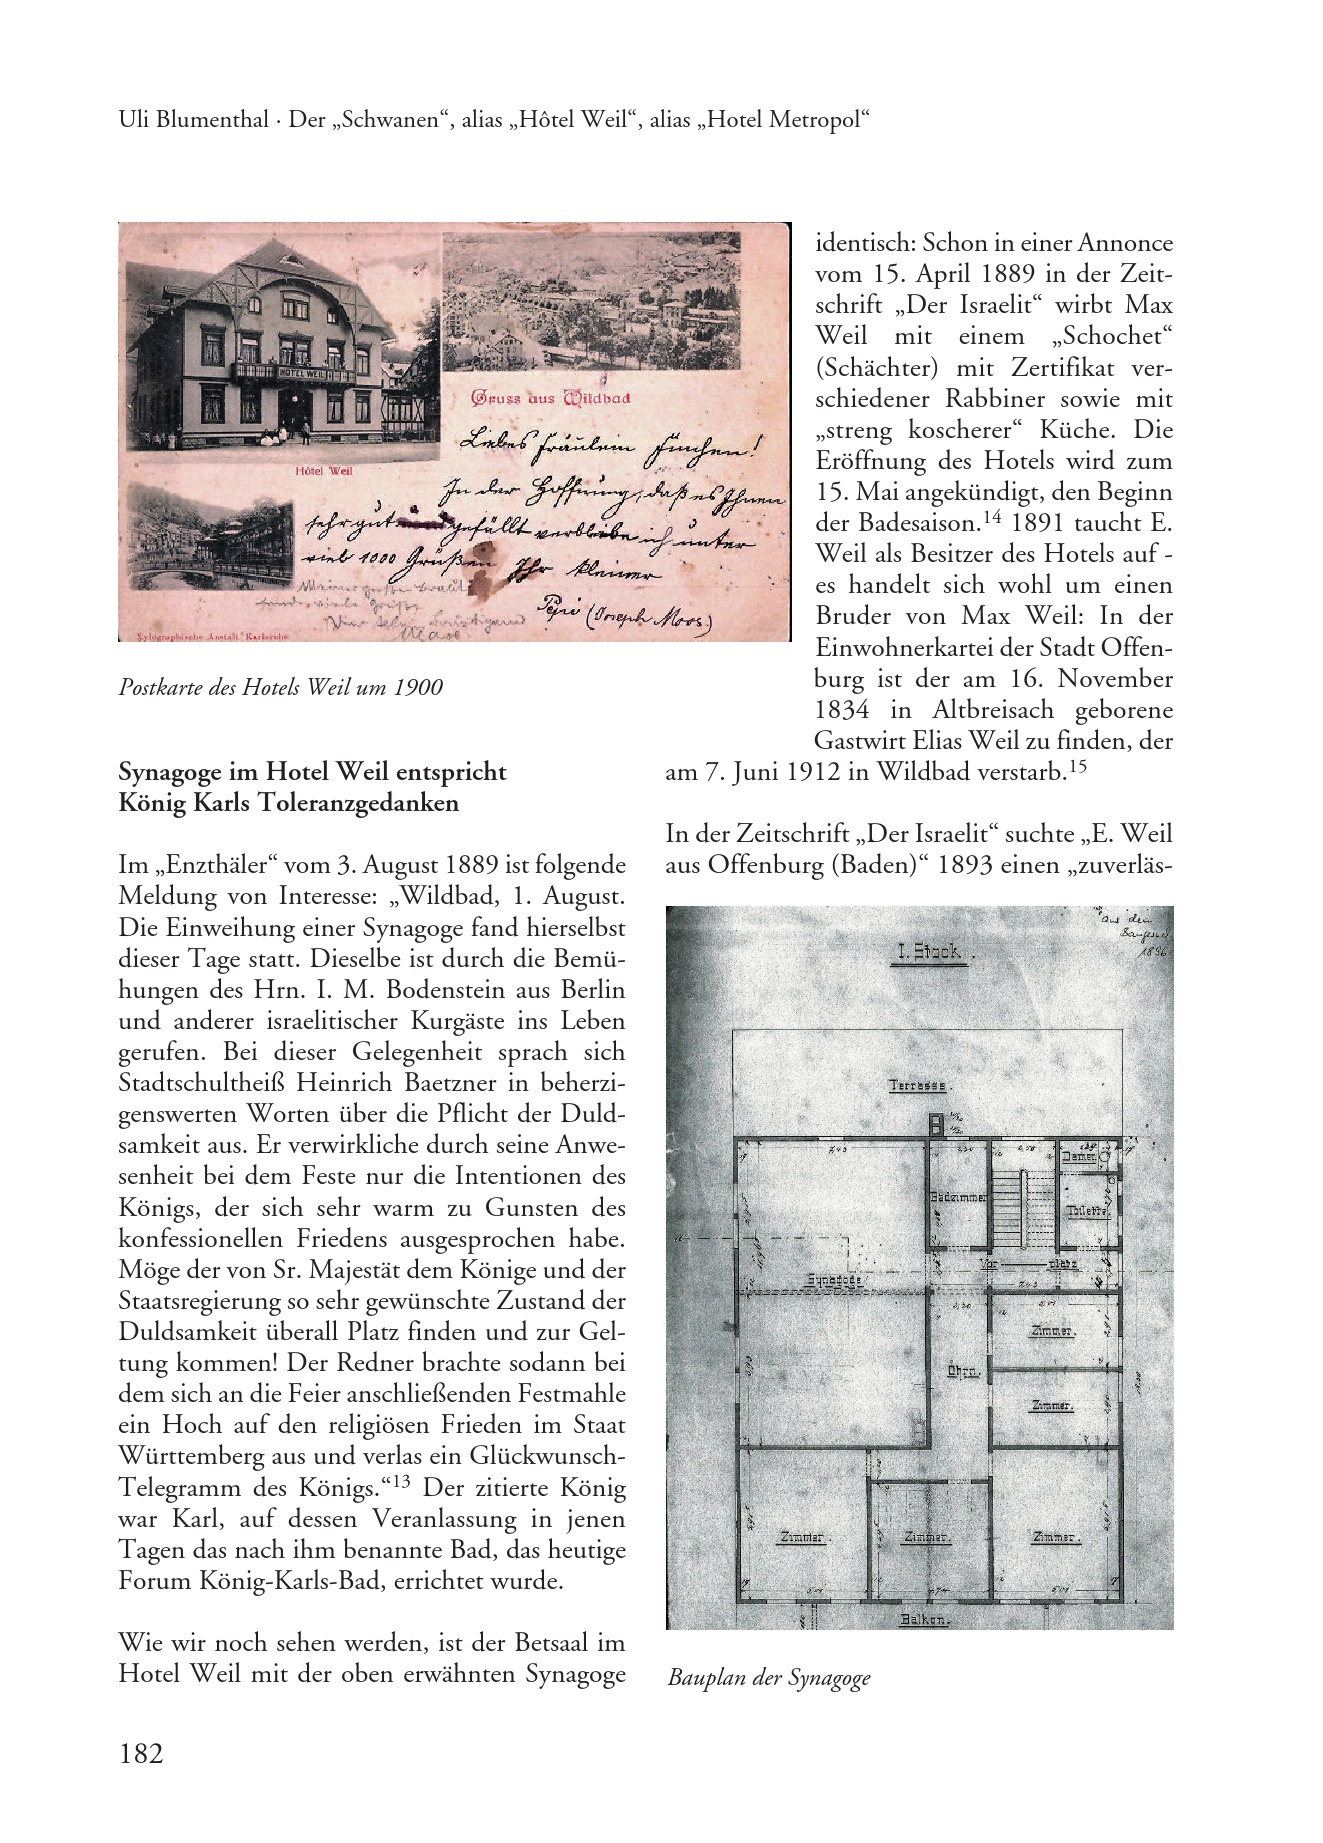 Uli Blumenthal · Der „Schwanen“, alias „Hôtel Weil“, alias „Hotel Metropol“
HOTEL WEIL
Gruss aus Wildbad
Hôtel Weil
Liebes Fräulein
In der Hoffnung, daß es Ihnen
sehr gut gefällt verbleibe ich unter
viel 1000 Grüßen Ihr kleiner
Pepi (Joseph Moos.)
Xylographische Anstalt Karlsruhe
Postkarte des Hotels Weil um 1900
Synagoge im Hotel Weil entspricht
König Karls Toleranzgedanken
Im „Enzthäler“ vom 3. August 1889 ist folgende
Meldung von Interesse: „Wildbad, 1. August.
Die Einweihung einer Synagoge fand hierselbst
dieser Tage statt. Dieselbe ist durch die Bemü-
hungen des Hrn. I. M. Bodenstein aus Berlin
und anderer israelitischer Kurgäste ins Leben
gerufen. Bei dieser Gelegenheit sprach sich
Stadtschultheiß Heinrich Baetzner in beherzi-
genswerten Worten über die Pflicht der Duld-
samkeit aus. Er verwirkliche durch seine Anwe-
senheit bei dem Feste nur die Intentionen des
Königs, der sich sehr warm zu Gunsten des
konfessionellen Friedens ausgesprochen habe.
Möge der von Sr. Majestät dem Könige und der
Staatsregierung so sehr gewünschte Zustand der
Duldsamkeit überall Platz finden und zur Gel-
tung kommen! Der Redner brachte sodann bei
dem sich an die Feier anschließenden Festmahle
ein Hoch auf den religiösen Frieden im Staat
Württemberg aus und verlas ein Glückwunsch-
Telegramm des Königs.“13 Der zitierte König
war Karl, auf dessen Veranlassung in jenen
Tagen das nach ihm benannte Bad, das heutige
Forum König-Karls-Bad, errichtet wurde.
Wie wir noch sehen werden, ist der Betsaal im
Hotel Weil mit der oben erwähnten Synagoge
identisch: Schon in einer Annonce
vom 15. April 1889 in der Zeit-
schrift „Der Israelit“ wirbt Max
Weil mit einem „Schochet“
(Schächter) mit Zertifikat ver-
schiedener Rabbiner sowie mit
„streng koscherer“ Küche. Die
Eröffnung des Hotels wird zum
15. Mai angekündigt, den Beginn
der Badesaison.14 1891 taucht E.
Weil als Besitzer des Hotels auf -
es handelt sich wohl um einen
Bruder von Max Weil: In der
Einwohnerkartei der Stadt Offen-
burg ist der am 16. November
1834 in Altbreisach geborene
Gastwirt Elias Weil zu finden, der
am 7. Juni 1912 in Wildbad verstarb.15
In der Zeitschrift „Der Israelit“ suchte „E. Weil
aus Offenburg (Baden)“ 1893 einen „zuverläs-
aus dem
Baugesuch
1896
I. Stock.
Terrasse.
Damen
Badzimmer
Toilette.
Vor platz
Synagoge
Zimmer.
Öhrn.
Zimmer.
Zimmer.
Zimmer.
Zimmer.
Balkon.
Bauplan der Synagoge
182